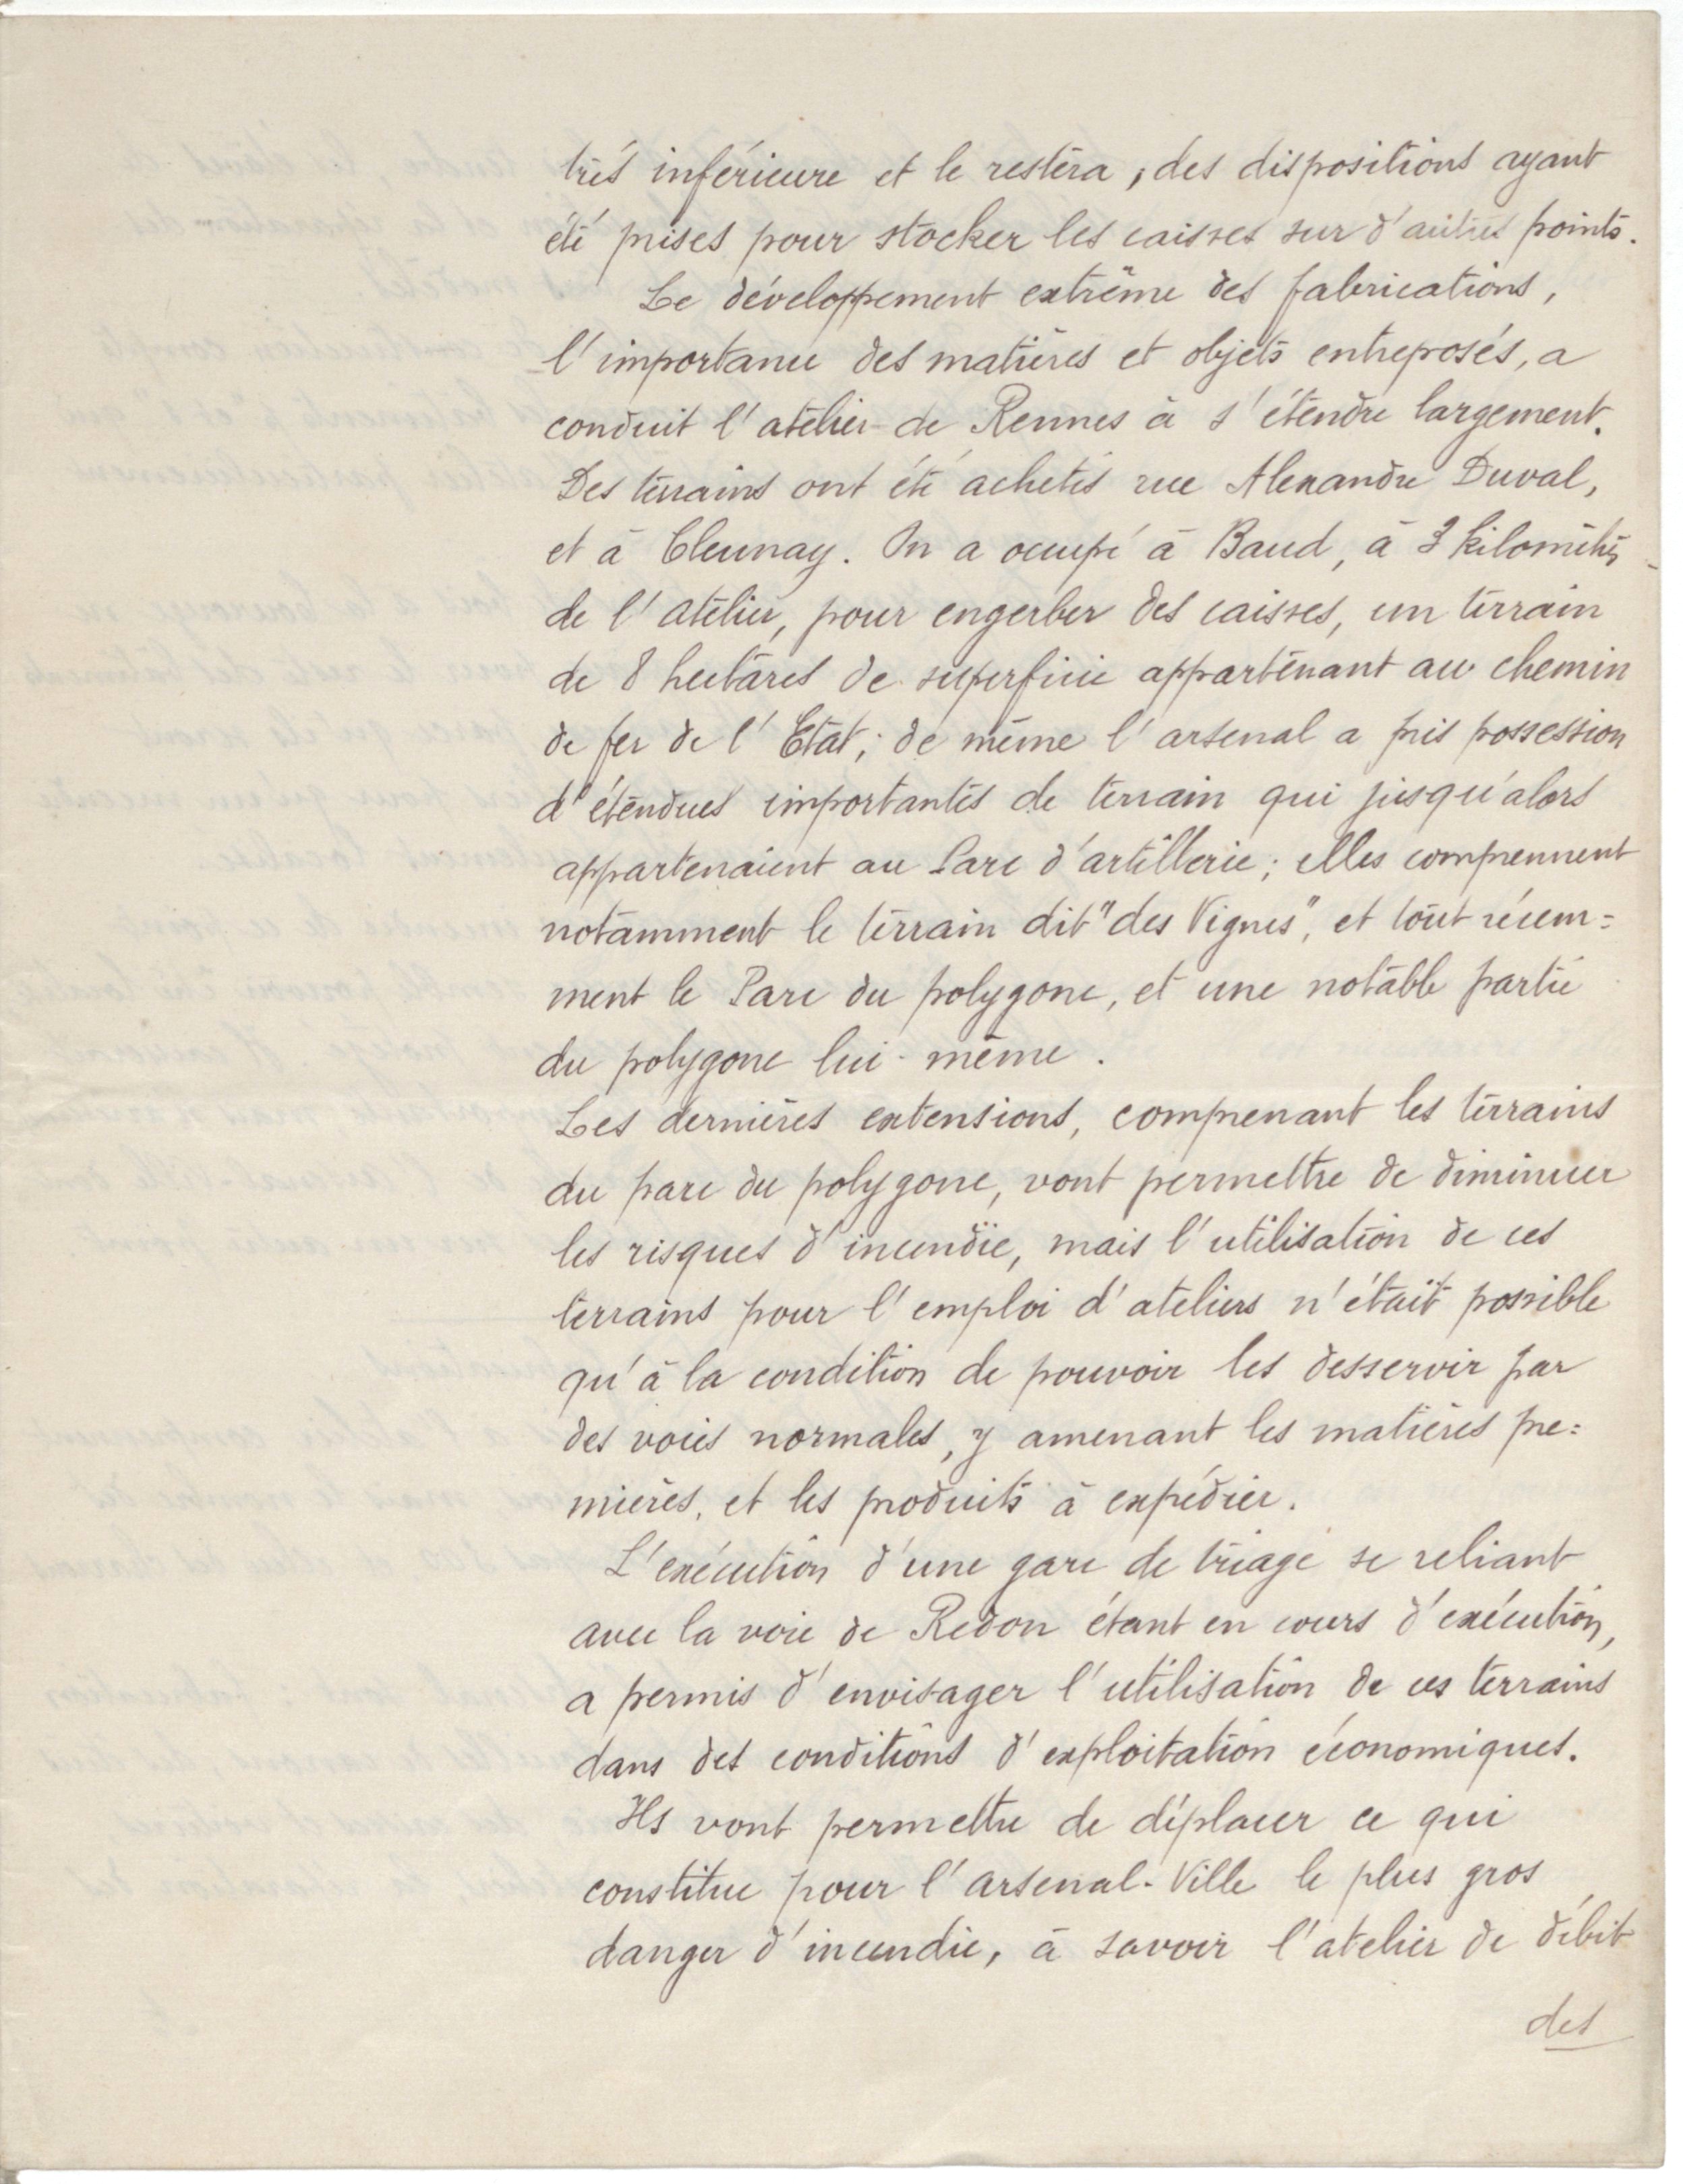 très inférieure et le restera, des dispositions ayant
été prises pour stocker les caisses sur d'autres points.
Le développement extrême des fabrications,
l'importance des matières et objets entreposés, a
conduit l'atelier de Rennes à s'étendre largement.
Des terrains ont été achetés rue Alexandre Duval,
et à Cleunay. On a occupé à Baud, à 3 kilomètres
de l'atelier, pour engerber des caisses, un terrain
de 8 hectares de superficie appartenant au chemin
de fer de l'Etat; de même l'arsenal a pris possession
d'étendues importantes de terrain qui jusqu'alors
appartenaient au Parc d'artillerie; elles comprennent
notamment le terrain dit "des Vignes", et tout récem=
ment le Parc du polygone, et une notable partie
du polygone lui-même.
Les dernières extensions, comprenant les terrains
du parc du polygone, vont permettre de diminuer
les risques d'incendie, mais l'utilisation de ces
terrains pour l'emploi d'ateliers n'était possible
qu'à la condition de pouvoir les desservir par
des voies normales, y amenant les matières pre=
mières, et les produits à expédier.
L'exécution d'une gare de triage se reliant
avec la voie de Redon étant en cours d'exécution,
a permis d'envisager l'utilisation de ces terrains
dans des conditions d'exploitation économiques.
Ils vont permettre de déplacer ce qui
constitue pour l'arsenal-Ville le plus gros
danger d'incendie, à savoir l'atelier de débit
des